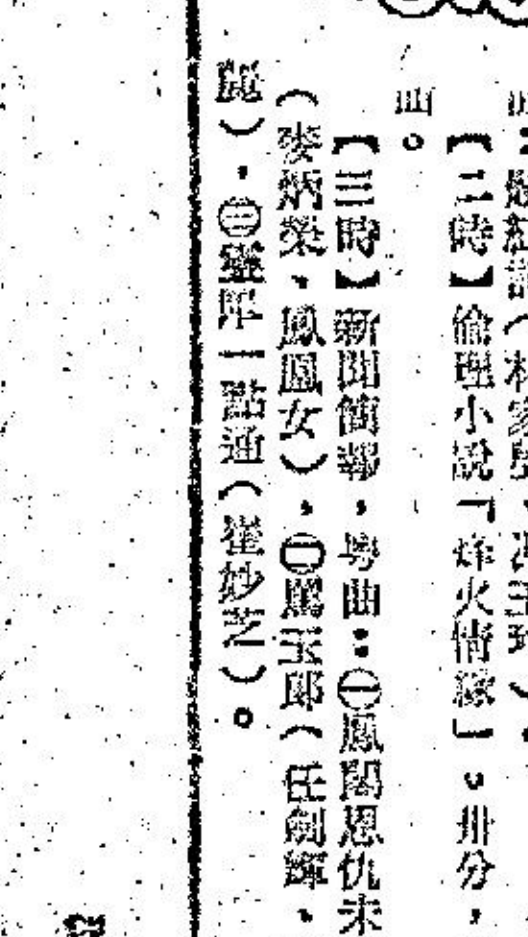 【二時】倫理小說「烽火情緣」。卅分，
曲。
【三時】新聞簡報，粤曲：㊀鳳閣恩仇未
（麥炳榮、鳳凰女），㊁罵玉郎（任劍輝、
），㊂靈犀一點通（崔妙芝）。